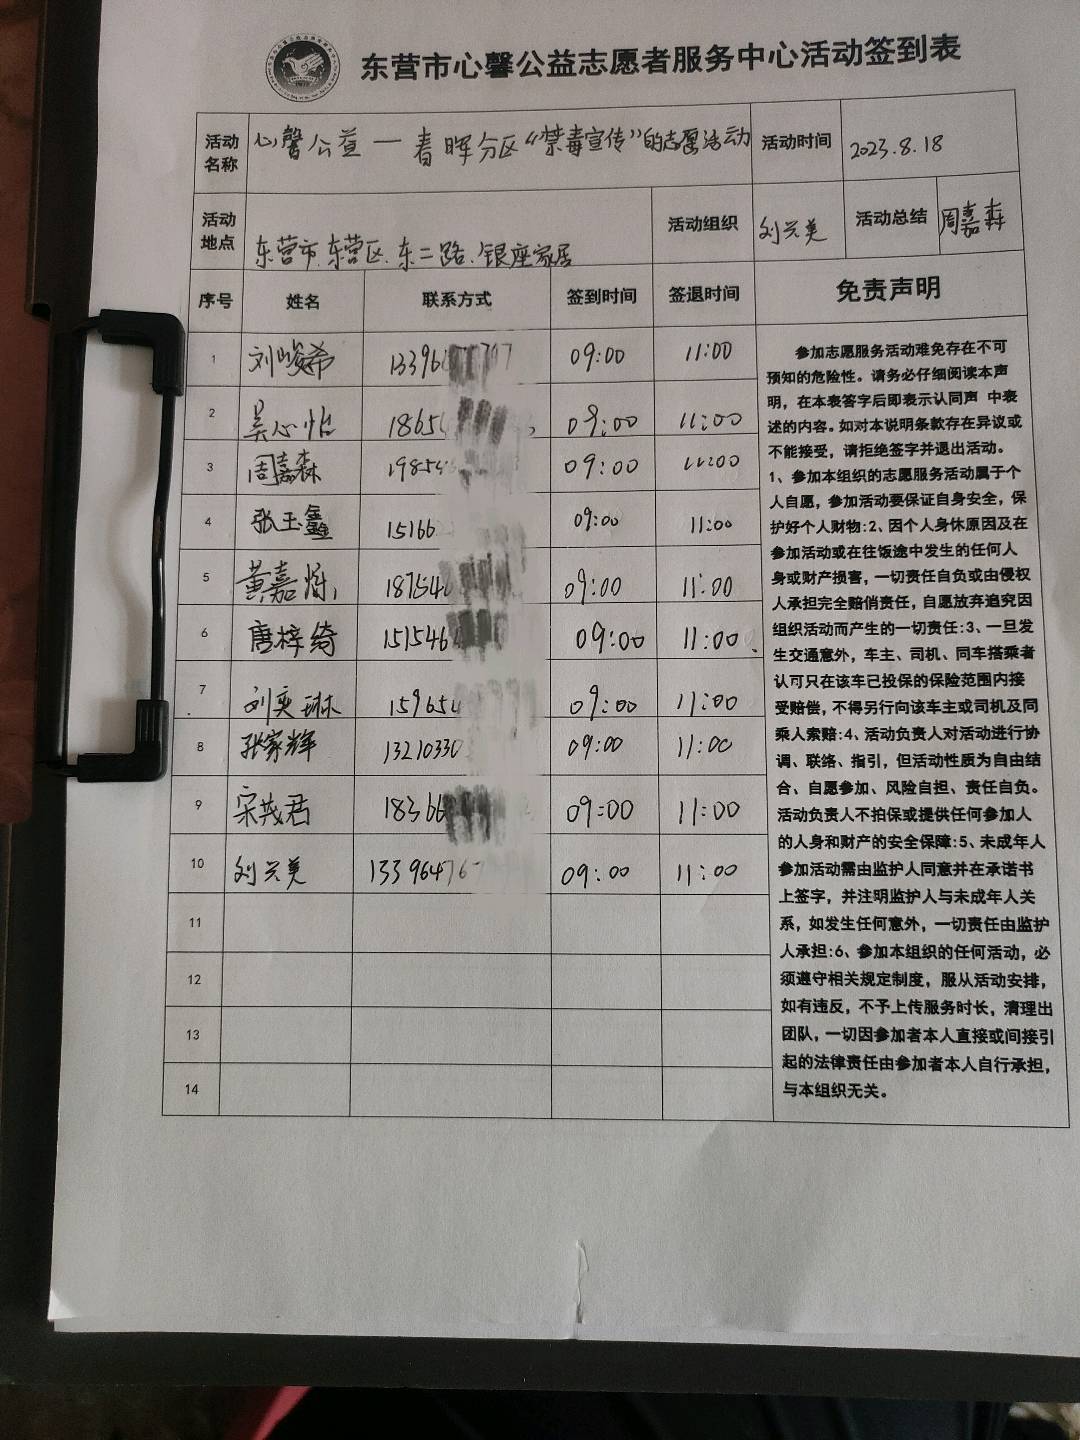 东营市心馨公益志愿者服务中心活动签到表
活动名称 心馨公益一春晖分区“禁毒宣传”的志愿活动 活动时间 2023.8.18
活动地点 东营市.东营区.东二路.银座家居 活动组织 刘兴美 活动总结 周嘉森
序号 姓名 联系方式 签到时间 签退时间 免责声明
1 刘峻希 13396 09:00 11:00
2 吴心怡 1865 09:00 11:00
3 周嘉森 19854 09:00 11:00
4 张玉鑫 15166 09:00 11:00
5 黄嘉烁 187546 09:00 11:00
6 唐梓绮 151546 09:00 11:00
7 刘奕琳 159654 09:00 11:00
8 张家辉 13210330 09:00 11:00
9 宋茂君 18366 09:00 11:00
10 刘兴美 13396476 09:00 11:00
11
12
13
14
参加志愿服务活动难免存在不可
预知的危险性。请务必仔细阅读本声
明，在本表签字后即表示认同声 中表
述的内容。如对本说明条款存在异议或
不能接受，请拒绝签字并退出活动。
1、参加本组织的志愿服务活动属于个
人自愿，参加活动要保证自身安全，保
护好个人财物:2、因个人身休原因及在
参加活动或在往饭途中发生的任何人
身或财产损害，一切责任自负或由侵权
人承担完全赔俏责任，自愿放弃追究因
组织活动而产生的一切责任:3、一旦发
生交通意外，车主、司机、同车搭乘者
认可只在该车已投保的保险范围内接
受赔偿，不得另行向该车主或司机及同
乘人索赔:4、活动负责人对活动进行协
调、联络、指引，但活动性质为自由结
合、自愿参加、风险自担、责任自负。
活动负责人不拍保或提供任何参加人
的人身和财产的安全保障:5、未成年人
参加活动需由监护人同意并在承诺书
上签字，并注明监护人与未成年人关
系，如发生任何意外，一切责任由监护
人承担:6、参加本组织的任何活动，必
须遵守相关规定制度，服从活动安排，
如有违反，不予上传服务时长，清理出
团队，一切因参加者本人直接或间接引
起的法律责任由参加者本人自行承担，
与本组织无关。